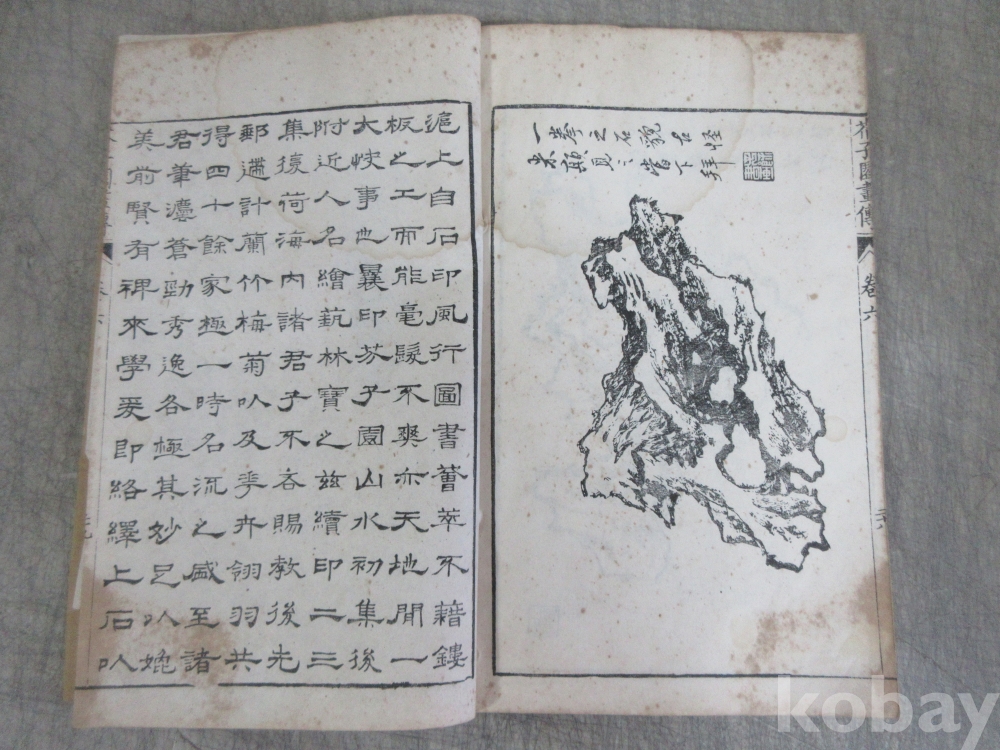 芥子園畫傳
卷六
一拳之石貌古怪
米顛見之當下拜
滬上自石印風行圖書薈萃不藉鏤
板之工而能毫髮不爽亦天地間一
大快事也曩印芥子園山水初集後
附近人名繪蓺林寶之茲續印二三
集復荷海內諸君子不吝賜教後先
郵遞計蘭竹梅菊以及華卉翎羽共
得四十餘家極一時名流之盛至諸
君筆灋蒼勁秀逸各極其妙足以媲
美前賢有裨來學爰即絡繹上石以
kobay